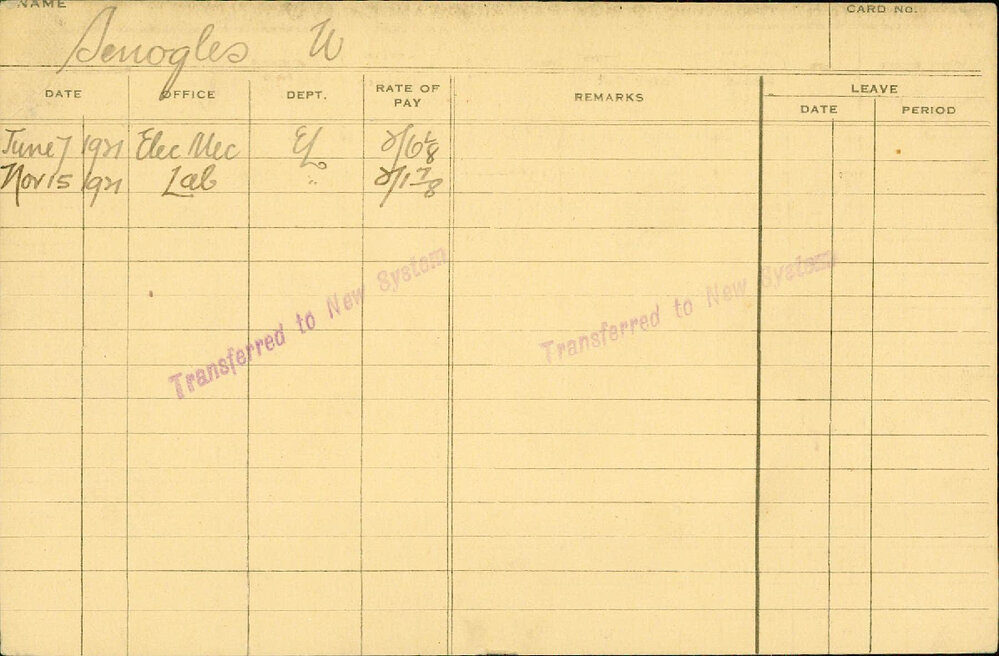 NAME
CARD NO.
Senogles W
DATE OFFICE DEPT. RATE OF PAY REMARKS LEAVE
DATE PERIOD
June 7 1921 Elec Mec EL
Nov 15 1921 Lab " 2/1 7/8
Transferred to New System
Transferred to New System